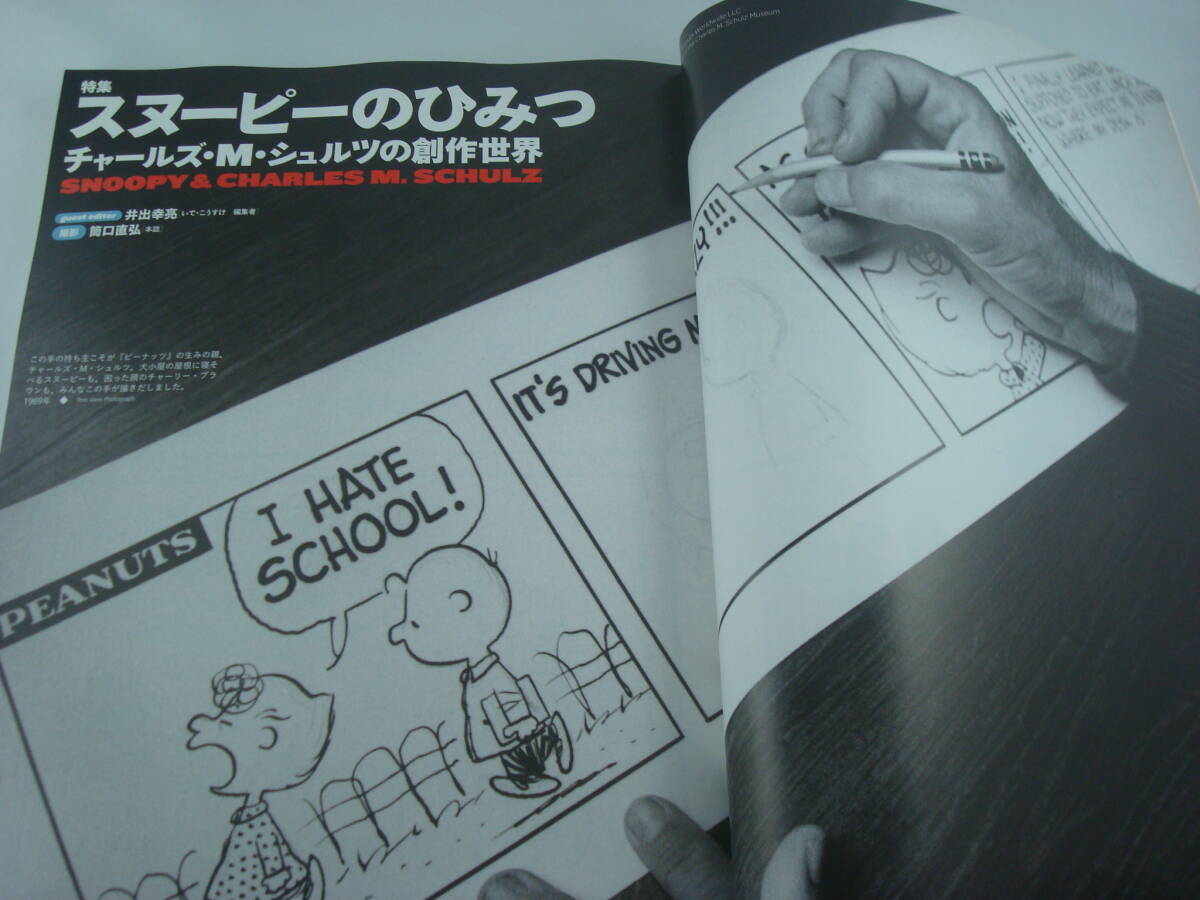 特集
スヌーピーのひみつ
チャールズ・M・シュルツの創作世界
SNOOPY & CHARLES M. SCHULZ
guest editor 井出幸亮 いで・こうすけ 編集者
撮影 筒口直弘 本誌
この手の持ち主こそが『ピーナッツ』の生みの親、
チャールズ・M・シュルツ。犬小屋の屋根に寝そ
べるスヌーピーも、困った顔のチャーリー・ブラ
ウンも、みんなこの手が描きだしました。
1969年 ◆
Worldwide LLC
Charles M. Schulz Museum
PEANUTS
I HATE
SCHOOL!
IT'S DRIVING
!!!